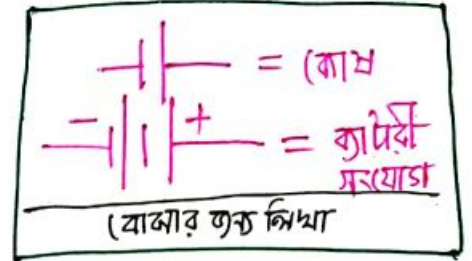 = কোষ
- + = ব্যাটারী
সংযোগ
বোঝার জন্য লিখা